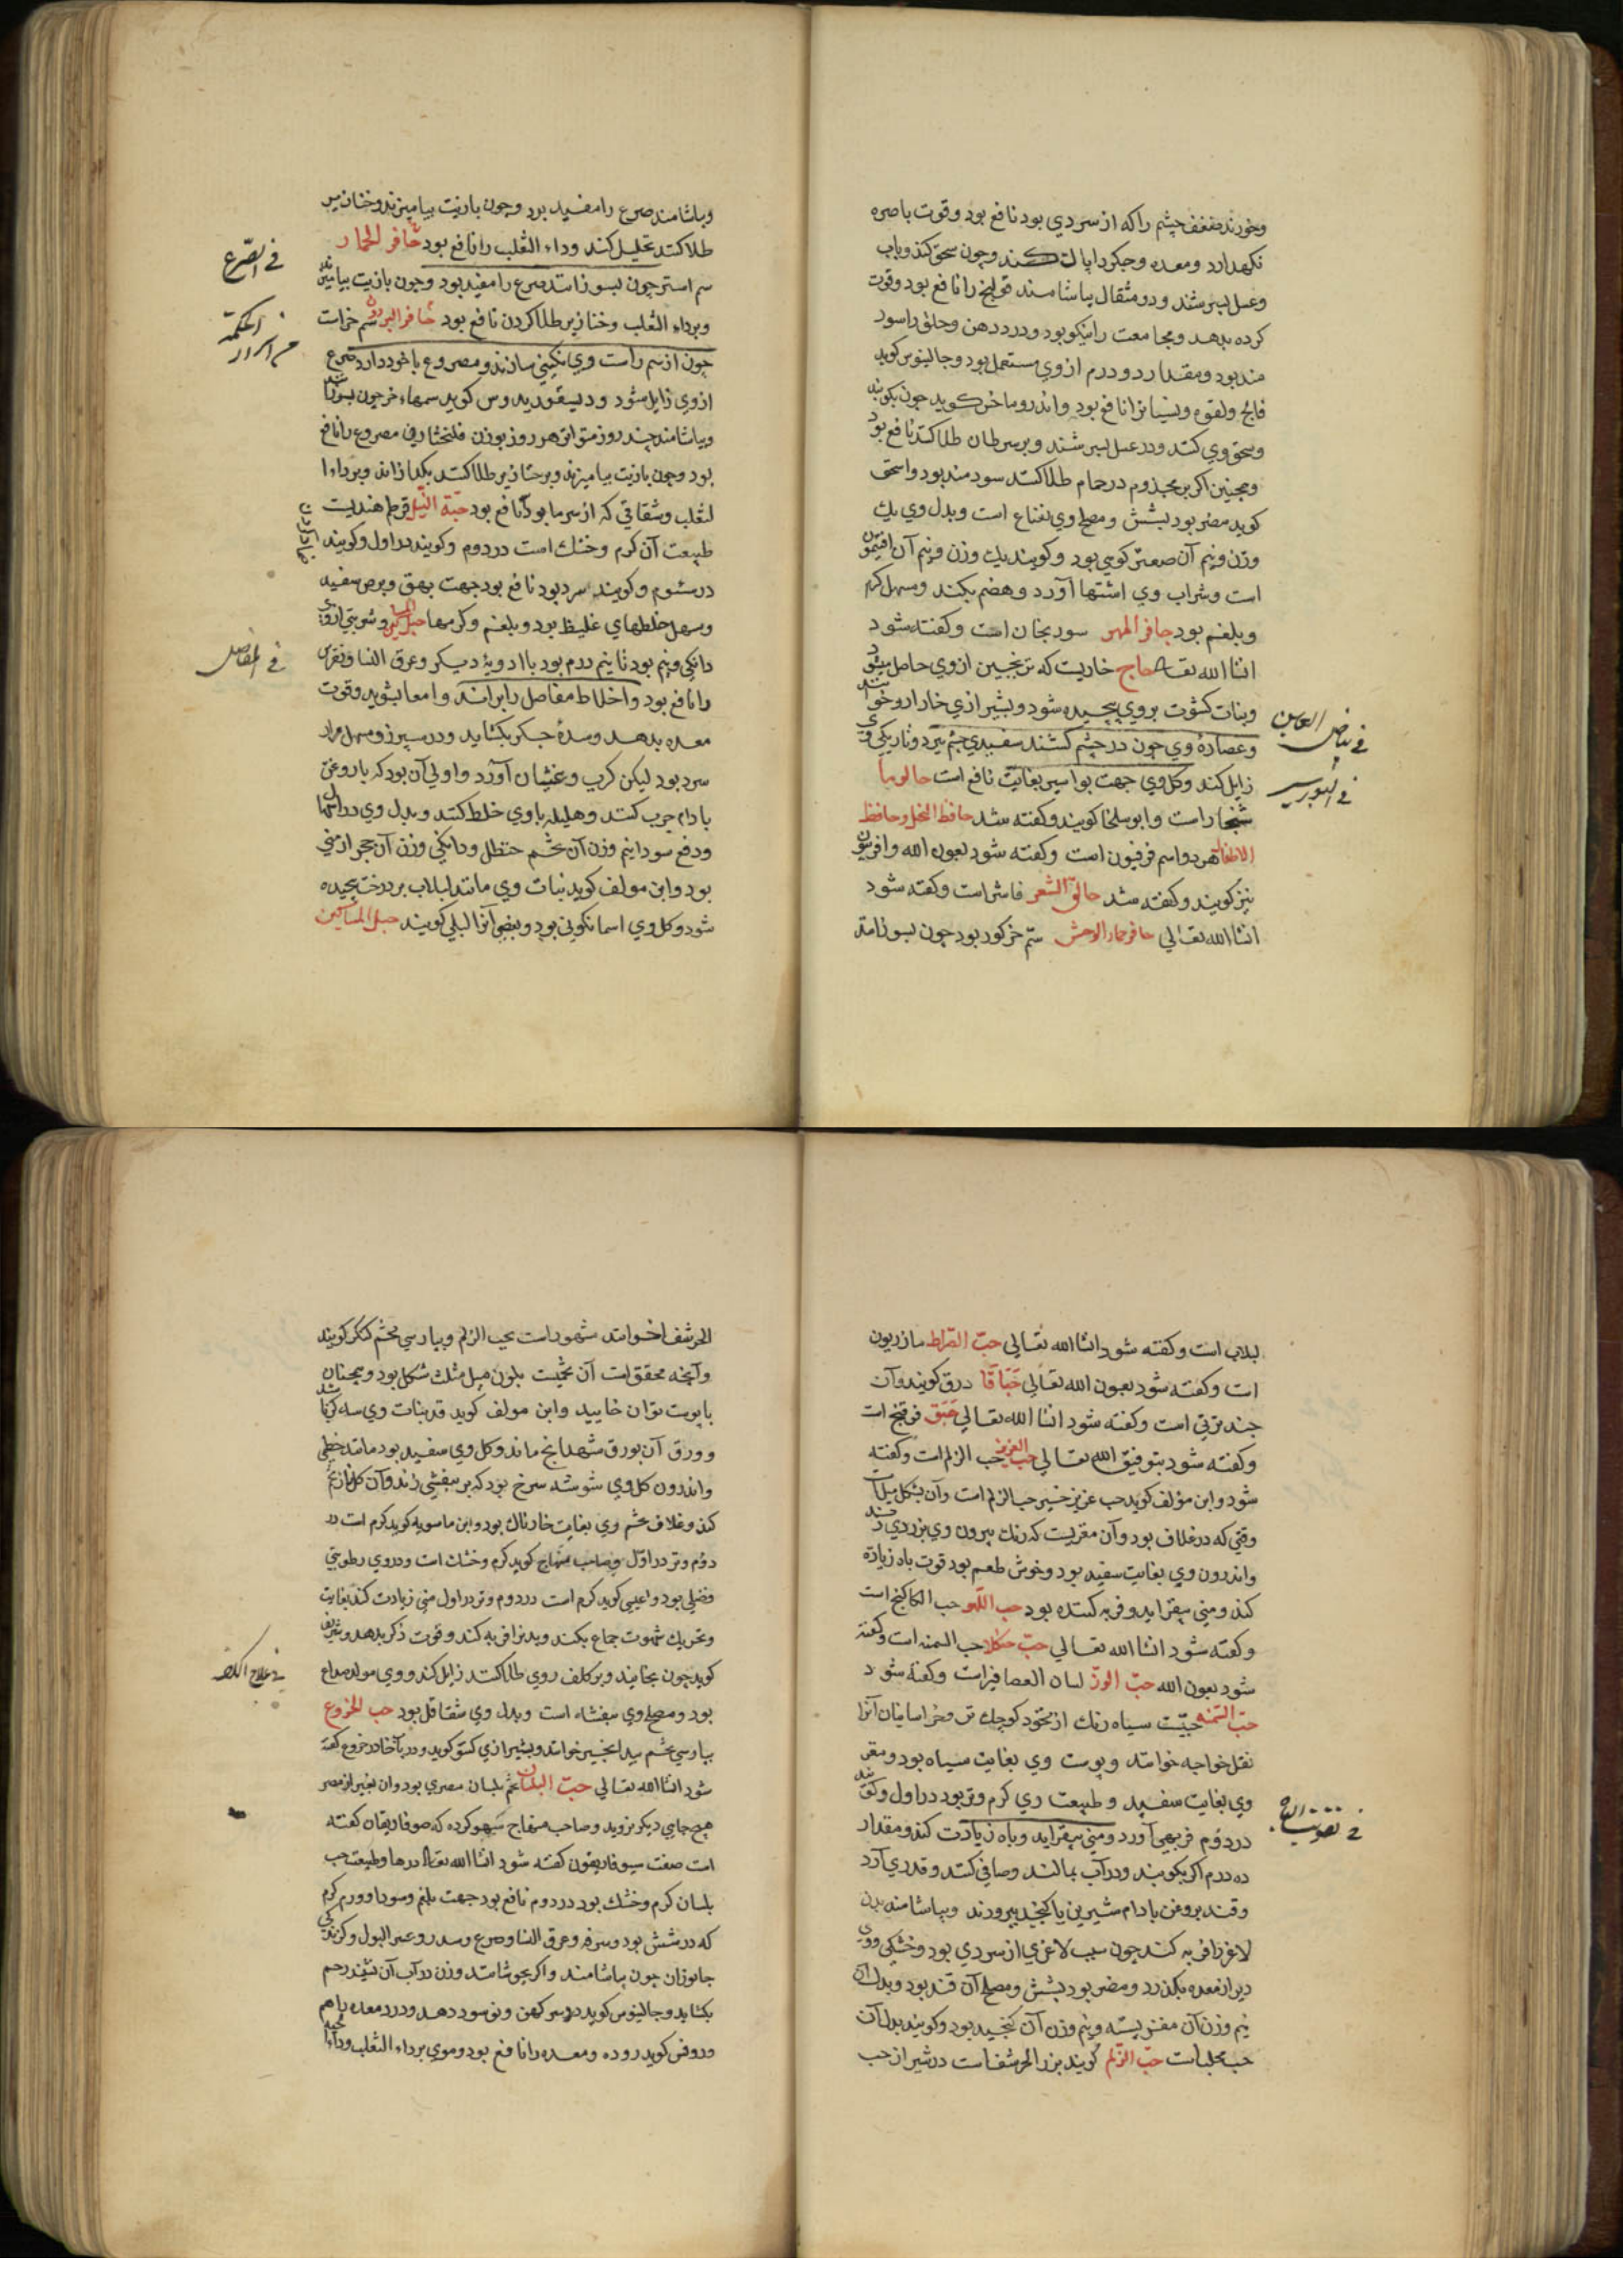 وبخورند ضعف چشم را که از سردی بود نافع بود وقوت باصره
نکهدارد ومعده وجکر را پاک کند وچون سحق کند وباب
وعسل بسرشند ودو مثقال بیاشامند قولنج را نافع بود وقوت
کرده بدهد ومجامعت را نیکو بود ودرد دهن وحلق را سود
مند بود ومقدار دو درم ازوی مستعمل بود وجالینوس کوید
فالج ولقوه ونسیانرا نافع بود واندروماخس کوید چون بکوبند
وسحق وی کنند ودر عسل بسرشند وبر سرطان طلا کنند نافع بود
وهمچنین اکر بر مجذوم در حمام طلا کنند سودمند بود واسحق
کوید مضر بود بشش ومصلح وی نعناع است وبدل وی یک
وزن ونیم آن صعتر کوهی بود وکویند یک وزن ونیم آن افتیمون
است وشراب وی اشتها آورد وهضم بکند ومسهل کرم
وبلغم بود حافر المهر سورنجان است وکفته شود
انشا الله تعالی حاج خاریست که ترنجبین ازوی حاصل میشود
ونبات کشوث بروی پیچیده شود وبشیرازی خار اروخوانند
وعصاره وی چون در چشم کشند سفیدی چشم ببرد وتاریکی وی
زایل کند وکل وی جهت بواسیر بغایت نافع است حالوما
شنجار است وابوسلخا کویند وکفته شد حافظ النحل وحافظ
الاطفال هر دو اسم فرفیون است وکفته شود بعون الله وافربیون
نیز کویند وکفته شد حالق الشعر فاشرا است وکفته شود
انشا الله تعالی حافر حمار الوحش سم خر کور بود چون بسوزانند
فی بیاض العین
فی البواسیر
وبیاشامند صرع را مفید بود وچون بازیت بیامیزند وخنازیر
طلا کنند تحلیل کند وداء الثعلب را نافع بود حافر الحمار
سم استر چون بسوزانند صرع را مفید بود وچون بازیت بیامیزند
وبرداء الثعلب وخنازیر طلا کردن نافع بود حافر البردون سم خر است
چون از سم راست وی نکینی سازند ومصروع باخود دارد صرع
ازوی زایل شود ودیسقوریدوس کوید سمهاء خر چون بسوزانند
وبیاشامند چند روز متواتر هر روز بوزن فلنجثارین مصروع را نافع
بود وچون بازیت بیامیزند وبر خنازیر طلا کنند بکدازاند وبرداء ا
لثعلب وشقاقی که از سرما بود نافع بود حبة النیل قرطم هندیست
طبیعت آن کرم وخشک است در دوم وکویند در اول وکویند
در سئوم وکویند سرد بود نافع بود جهت بهق وبرص سفید
ومسهل خلطهای غلیظ بود وبلغم وکرمها وشربتی ازوی
دانکی ونیم بود تا نیم درم بود با ادویهٔ دیکر وعرق النسا ونقرس
را نافع بود واخلاط مفاصل را براند وامعا بشوید وقوت
معده بدهد وسدهٔ جکر بکشاید ودر سپرز ومسهل مرار
سرد بود لیکن کرب وغثیان آورد واولی آن بود که باروغن
بادام چرب کنند وهلیله باوی خلط کنند وبدل وی در اسهال
ودفع سودا نیم وزن آن شحم حنظل ودانکی وزن آن حجر ارمنی
بود وابن مولف کوید نبات وی مانند لبلاب بر درخت پیچیده
شود وکل وی اسمانکونی بود وبعضی آنرا لبلی کویند حبل المساکین
فی الصرع
فی المفاصل
لبلاب است وکفته شود انشا الله تعالی حب الضراط مازریون
است وکفته شود بعون الله تعالی حباقا درق کویند وآن
حندقوقی است وکفته شود انشا الله تعالی حبق فوتنج است
وکفته شود بتوفیق الله تعالی حب العزیز حب الزلم است وکفته
شود وابن مؤلف کوید حب عزیز حب الزلم است وآن بشکل
وقتی که در غلاف بود وآن مغزیست که رنک بیرون وی بزردی زند
واندرون وی بغایت سفید بود وخوش طعم بود قوت باه زیاده
کند ومنی بیفزاید وفربه کننده بود حب اللهو حب الکاکنج است
وکفته شود انشا الله تعالی حب کلا حب السمنه است وکفته
شود بعون الله حب الوز لسان العصافیر است وکفته شود
حب السمنه حبیست سیاه رنک از نخود کوچک تر وخراسانیان آنرا
نقل خواجه خوانند وپوست وی بغایت سیاه بود ومغز
وی بغایت سفید وطبیعت وی کرم وتر بود در اول وکویند
در دوم فربهی آورد ومنی بیفزاید وباه زیادت کند ومقدار
ده درم اکر بکوبند ودر آب بمالند وصافی کنند وقدری آرد
وقند بروغن بادام شیرین یا کنجید بپرورند وبیاشامند بدن
لاغر را فربه کند چون سبب لاغری از سردی بود وخشکی ووی
دیر از معده بکذرد ومضر بود بشش ومصلح آن قند بود وبدل آن
نیم وزن آن مغز پسته ونیم وزن آن کنجید بود وکویند بدل آن
حب محلب است حب الزلم کویند بزر الحرشف است در شیراز حب
الحرشف خوانند مشهور است بحب الزلم وبپارسی تخم کنکر کویند
وآنچه محقق است آن تخمیست بلون مثلث شکل بود وهمچنان
باپوست توان خایید وابن مولف کوید قد نبات وی سه کز باشد
وورق آن بورق شهدانج ماند وکل وی سفید بود مانند خطمی
واندرون کل وی شوشه سرخ بود که ببنفشی زند وآن کل
کند وغلاف تخم وی بغایت خارناک بود وابن ماسویه کوید کرم است در
دوم وتر در اول وصاحب منهاج کوید کرم وخشک است ودر وی رطوبتی
فضلی بود وعیسی کوید کرم است در دوم وتر در اول منی زیادت کند بغایت
وتحریک شهوت جماع بکند وبدنرا فربه کند وقوت ذکر بدهد وشریف
کوید چون بخایند وبر کلف روی طلا کنند زایل کند ووی مولد صداع
بود ومصلح وی بنفشه است وبدل وی شقاقل بود حب الخروع
بپارسی تخم بیدانجیر خوانند وبشیرازی کنتو کوید ودر باب خا در خروع کفته
شود انشا الله تعالی حب البلسان تخم بلسان مصری بود وآن بغیر از مصر
هیچ جایی دیکر نروید وصاحب منهاج سهو کرده که هوفاریقون کفته
است صفت هیوفاریقون کفته شود انشا الله تعالی در ها وطبیعت حب
بلسان کرم وخشک بود در دوم نافع بود جهت بلغم وسودا وورم کرم
که در شش بود وسرفه وعرق النسا وصرع وسدر وعسر البول وکزیدکی
جانوران چون بیاشامند واکر بجوشانند وزن در آب آن نشیند رحم
بکشاید وجالینوس کوید درد سر کهن ونو سود دهد ودرد معده باهم
وروفس کوید روده ومعده را نافع بود وموی برداء الثعلب وداء الحیه